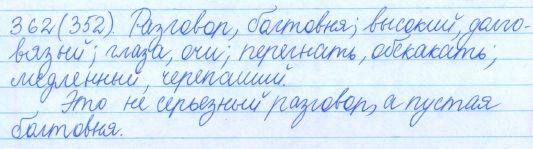 362(352). Разговор, болтовня; высокий, долго-
вязый; глаза, очи; перегнать, обскакать;
медленный, черепаший.
Это не серьезный разговор, а пустая
болтовня.